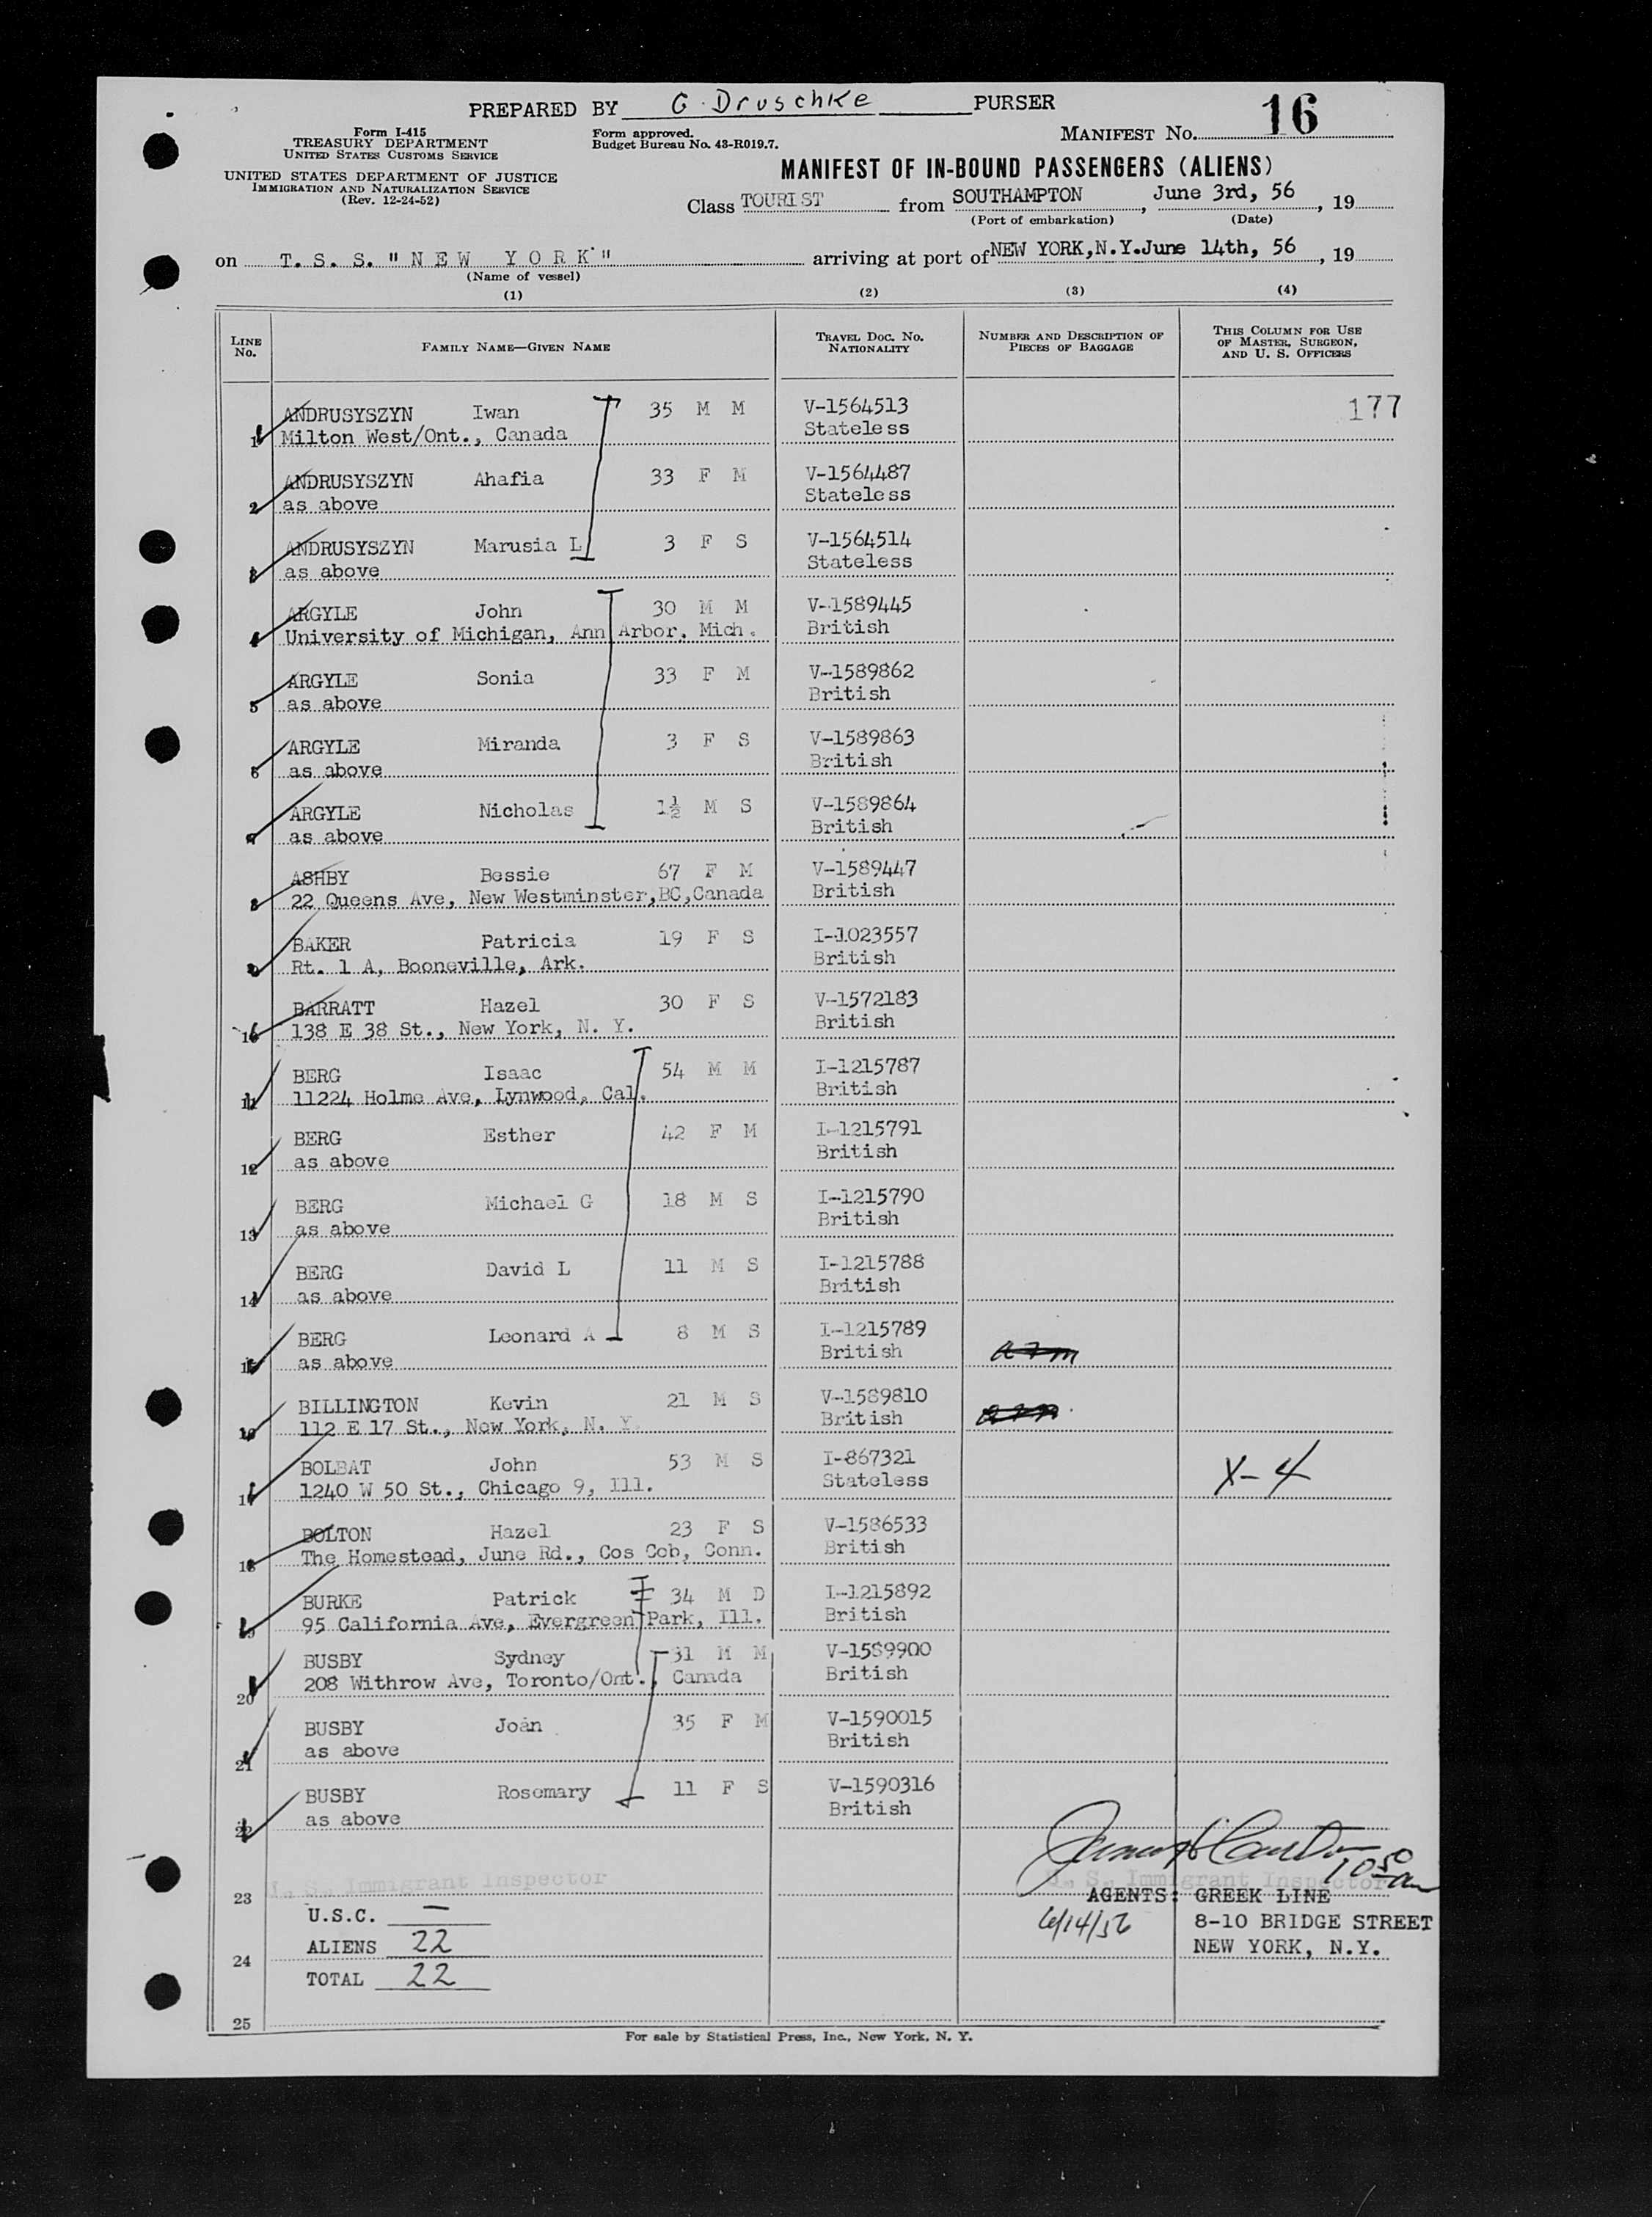 PREPARED BY G. Druschke PURSER
Form I-415
TREASURY DEPARTMENT
UNITED STATES CUSTOMS SERVICE
Form approved.
Budget Bureau No. 43-R019.7.
MANIFEST No. 16
UNITED STATES DEPARTMENT OF JUSTICE
IMMIGRATION AND NATURALIZATION SERVICE
(Rev. 12-24-52)
MANIFEST OF IN-BOUND PASSENGERS (ALIENS)
Class TOURIST from SOUTHAMPTON, June 3rd, 56, 19
(Port of embarkation) (Date)
on T. S. S. "NEW YORK" arriving at port of NEW YORK, N.Y. June 14th, 56, 19
(Name of vessel)
(1) (2) (3) (4)
LINE No. FAMILY NAME—GIVEN NAME TRAVEL DOC. NO. NATIONALITY NUMBER AND DESCRIPTION OF PIECES OF BAGGAGE THIS COLUMN FOR USE OF MASTER, SURGEON, AND U. S. OFFICERS
ANDRUSYSZYN Iwan 35 M M V-1564513 177
1 Milton West/Ont., Canada Stateless
ANDRUSYSZYN Ahafia 33 F M V-1564487
2 as above Stateless
ANDRUSYSZYN Marusia L 3 F S V-1564514
3 as above Stateless
ARGYLE John 30 M M V-1589445
4 University of Michigan, Ann Arbor, Mich. British
ARGYLE Sonia 33 F M V-1589862
5 as above British
ARGYLE Miranda 3 F S V-1589863
6 as above British
ARGYLE Nicholas 1½ M S V-1589864
7 as above British
ASHBY Bessie 67 F M V-1589447
8 22 Queens Ave, New Westminster, BC, Canada British
BAKER Patricia 19 F S I-1023557
9 Rt. 1 A, Booneville, Ark. British
BARRATT Hazel 30 F S V-1572183
10 138 E 38 St., New York, N. Y. British
BERG Isaac 54 M M I-1215787
11 11224 Holme Ave, Lynwood, Cal. British
BERG Esther 42 F M I-1215791
12 as above British
BERG Michael G 18 M S I-1215790
13 as above British
BERG David L 11 M S I-1215788
14 as above British
BERG Leonard A 8 M S I-1215789
15 as above British
BILLINGTON Kevin 21 M S V-1589810
16 112 E 17 St., New York, N. Y. British
BOLBAT John 53 M S I-867321
17 1240 W 50 St., Chicago 9, Ill. Stateless X-4
BOLTON Hazel 23 F S V-1586533
18 The Homestead, June Rd., Cos Cob, Conn. British
BURKE Patrick 34 M D I-1215892
19 95 California Ave, Evergreen Park, Ill. British
BUSBY Sydney 31 M M V-1589900
20 208 Withrow Ave, Toronto/Ont., Canada British
BUSBY Joan 35 F M V-1590015
21 as above British
BUSBY Rosemary 11 F S V-1590316
22 as above British
10 50 am
U. S. Immigrant Inspector U. S. Immigrant Inspector
23 AGENTS: GREEK LINE
U.S.C. — 6/14/56 8-10 BRIDGE STREET
ALIENS 22 NEW YORK, N.Y.
24
TOTAL 22
25
For sale by Statistical Press, Inc., New York, N. Y.